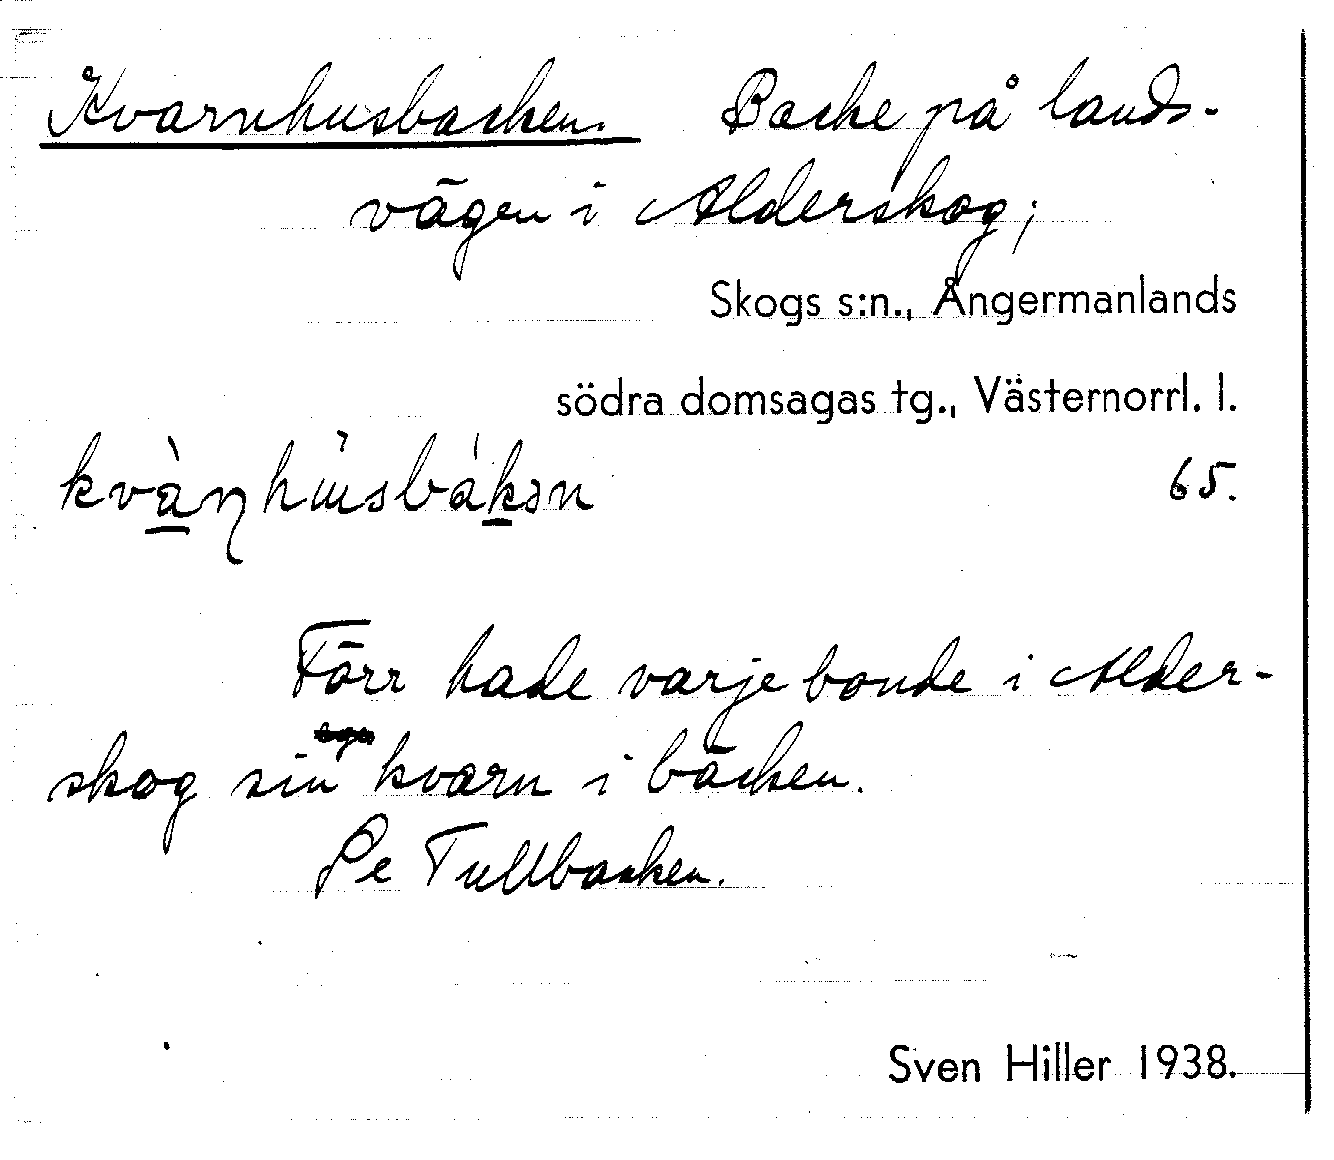 Kvarnhusbacken. Backe på lands-
vägen i Alderskog;
Skogs s:n., Ångermanlands
södra domsagas tg., Västernorrl. l.
kvàɳhúsbákən 65.
Förr hade varje bonde i Alder-
skog sin kvarn i bäcken.
Pe Tullbacken.
Sven Hiller 1938.